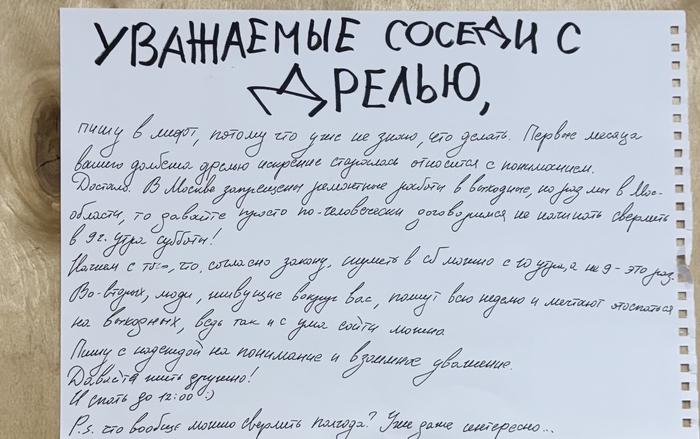 УВАЖАЕМЫЕ СОСЕДИ С
ДРЕЛЬЮ,
пишу в лифт, потому что уже не знаю, что делать. Первые месяца
вашего долбежа дрелью искренне старалась относится с пониманием.
Достало. В Москве запрещены ремонтные работы в выходные, но раз мы в Мос-
области, то давайте просто по-человечески договоримся не начинать сверлить
в 9 г. утра субботы!
Начнем с того, что, согласно закону, шуметь в сб можно с 10 утра, а не 9 - это раз.
Во-вторых, люди, живущие вокруг вас, пашут всю неделю и мечтают отоспаться
на выходных, ведь так и с ума сойти можно
Пишу с надеждой на понимание и взаимное уважение.
Давайте жить дружно!
И спать до 12:00 :)
P.s. что вообще можно сверлить полгода? Уже даже интересно...